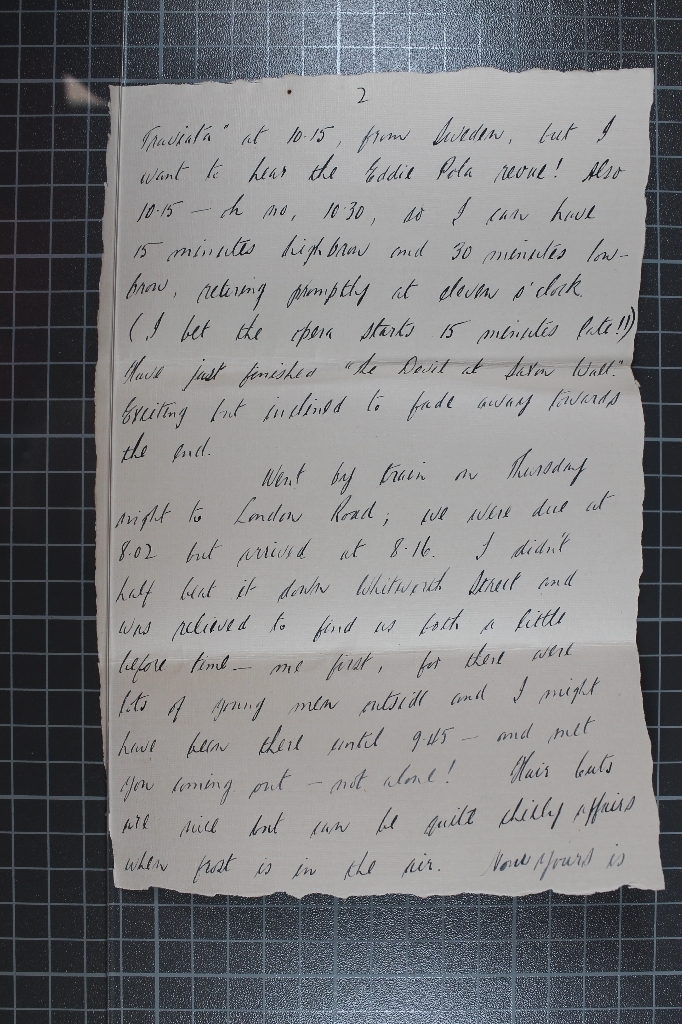 2
Traviata" at 10.15, from Sweden, but I
want to hear the Eddie Pola revue! Also
10.15 — oh no, 10.30, so I can have
15 minutes highbrow and 30 minutes low-
brow, retiring promptly at eleven o'clock.
(I bet the opera starts 15 minutes late!!)
Have just finished "The Devil at Saxon Wall."
Exciting but inclined to fade away towards
the end.
Went by train on Thursday
night to London Road; we were due at
8.02 but arrived at 8.16. I didn't
half beat it down Whitworth Street and
was relieved to find us both a little
before time — me first, for there were
lots of young men outside and I might
have been there until 9.45 — and met
you coming out — not alone! Hair cuts
are nice but can be quite chilly affairs
when frost is in the air. Now yours is